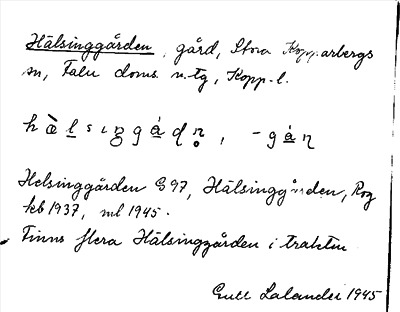 Hälsinggården, gård, Stora Kopparbergs
sn, Falu doms. n. tg, Kopp. l.
hæ̀lsıŋgádn̥, -gáɳ
Helsinggården G 97, Hälsinggården, Rog
kb 1937, ml 1945.
Finns flera Hälsinggården i trakten
Gull Lalander 1945